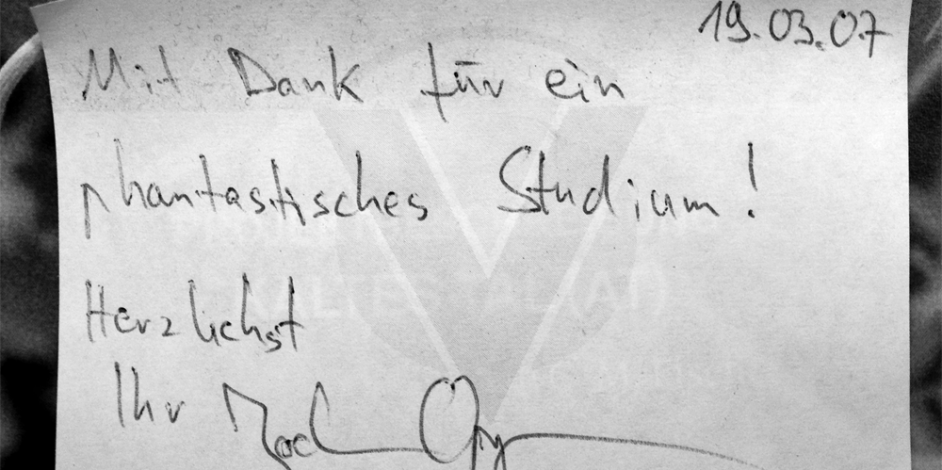 19.03.07
Mit Dank für ein
phantastisches Studium!
Herzlichst
Ihr